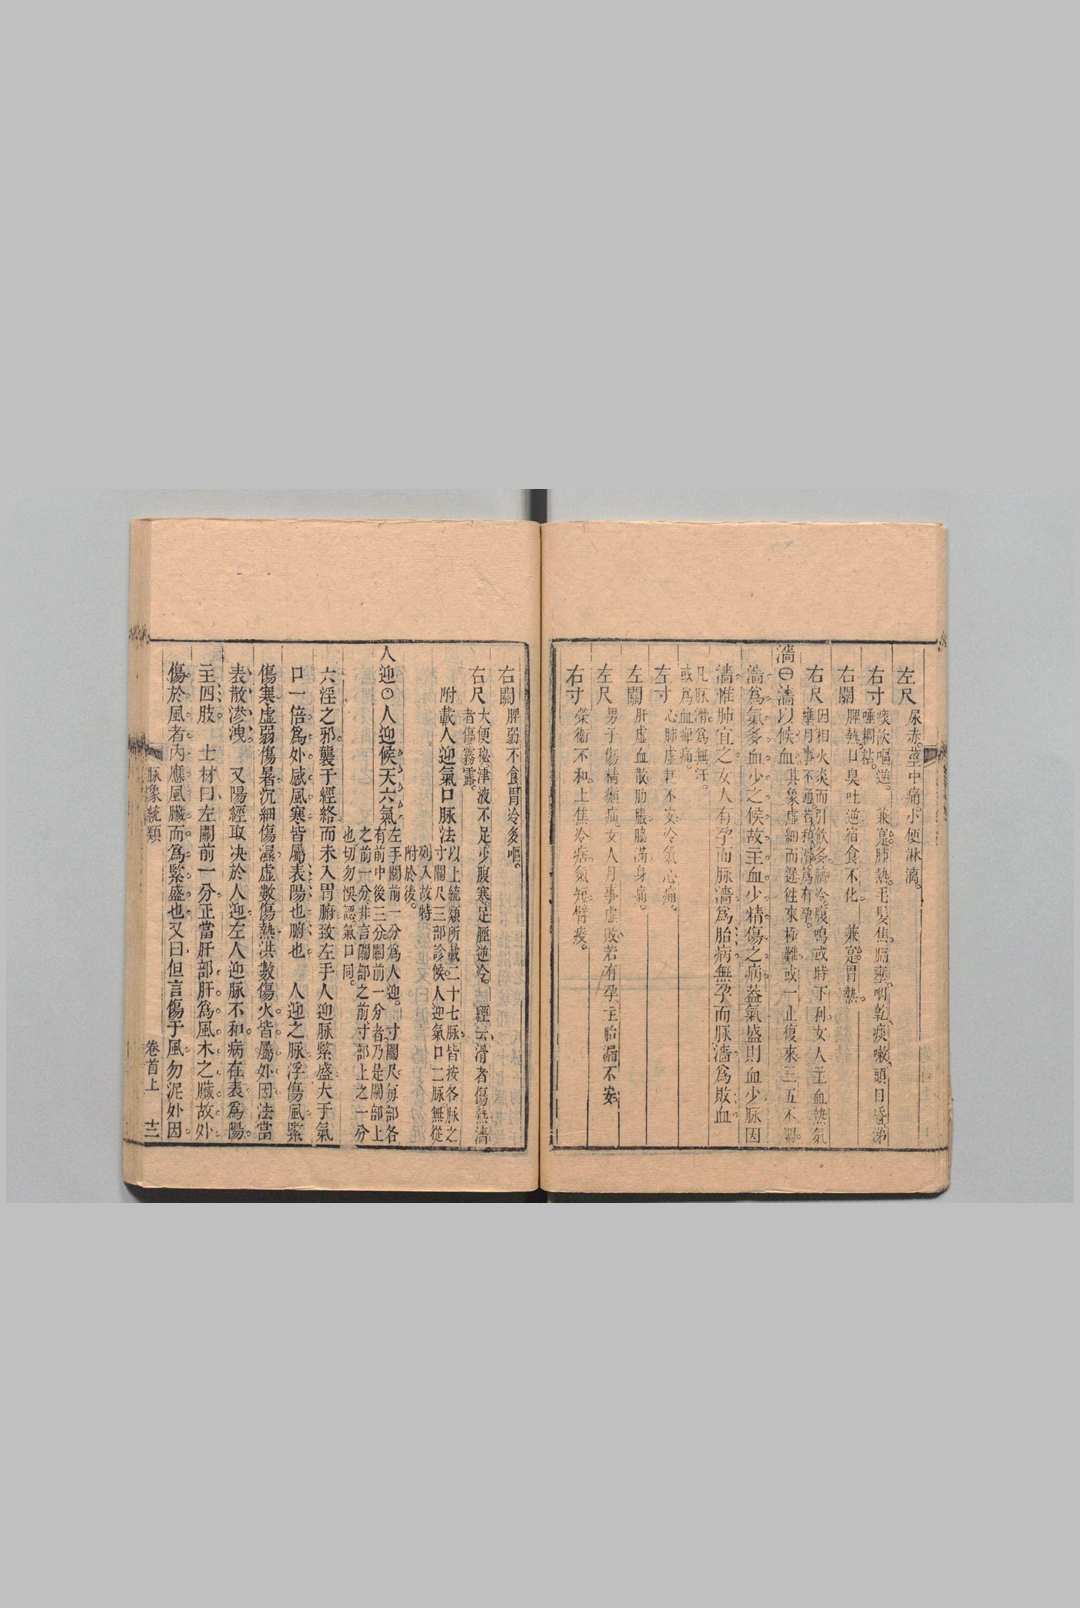 左尺 尿赤莖中痛小便淋瀝
右寸 痰飲嘔逆 兼寔肺熱毛髮焦膈壅咽乾痰嗽頭目昏涕
唾稠粘
右關 脾熱口臭吐逆宿食不化 兼寔胃熱
右尺 因相火炎而引飲多臍冷腹鳴或時下利女人主血熱氣
壅月事不通若和滑爲有孕
濇 濇以候血 其象虛細而遲往來極難或一止復來三五不調
濇爲氣多血少之候故主血少精傷之病蓋氣盛則血少脉因
濇惟肺宜之女人有孕而脉濇爲胎病無孕而脉濇爲敗血
凡脉濇爲無汗
或爲血痺痛
左寸 心肺虛耗不安冷氣心痛
左關 肝虛血散肋脹脇滿身痛
左尺 男子傷精癲疝女人月事虛敗若有孕主胎漏不安
右寸 榮衛不和上焦冷痞氣短臂痠
右關 脾弱不食胃冷多嘔
右尺 大便秘津液不足少腹寒足脛逆冷 經云滑者傷熱濇
者傷霧露
附載人迎氣口脉法 以上統類所載二十七脉皆按各脉之
寸關尺三部診候人迎氣口二脉無從
列入故特
附於後
人迎○人迎候天六氣 左手關前一分爲人迎寸關尺每部各
有前中後三分關前一分者乃是關部上
之前一分非言關部之前寸部上之一分
也切勿悞認氣口同
六淫之邪襲于經絡而未入胃腑致左手人迎脉緊盛大于氣
口一倍爲外感風寒皆屬表陽也腑也 人迎之脉浮傷風緊
傷寒虛弱傷暑沉細傷濕虛數傷熱洪數傷火皆屬外因法當
表散滲洩 又陽經取决於人迎左人迎脉不和病在表爲陽
主四肢 士材曰左關前一分正當肝部肝爲風木之臟故外
傷於風者內應風臟而爲緊盛也又曰但言傷于風勿泥外因
脉象統類 卷首上 十二